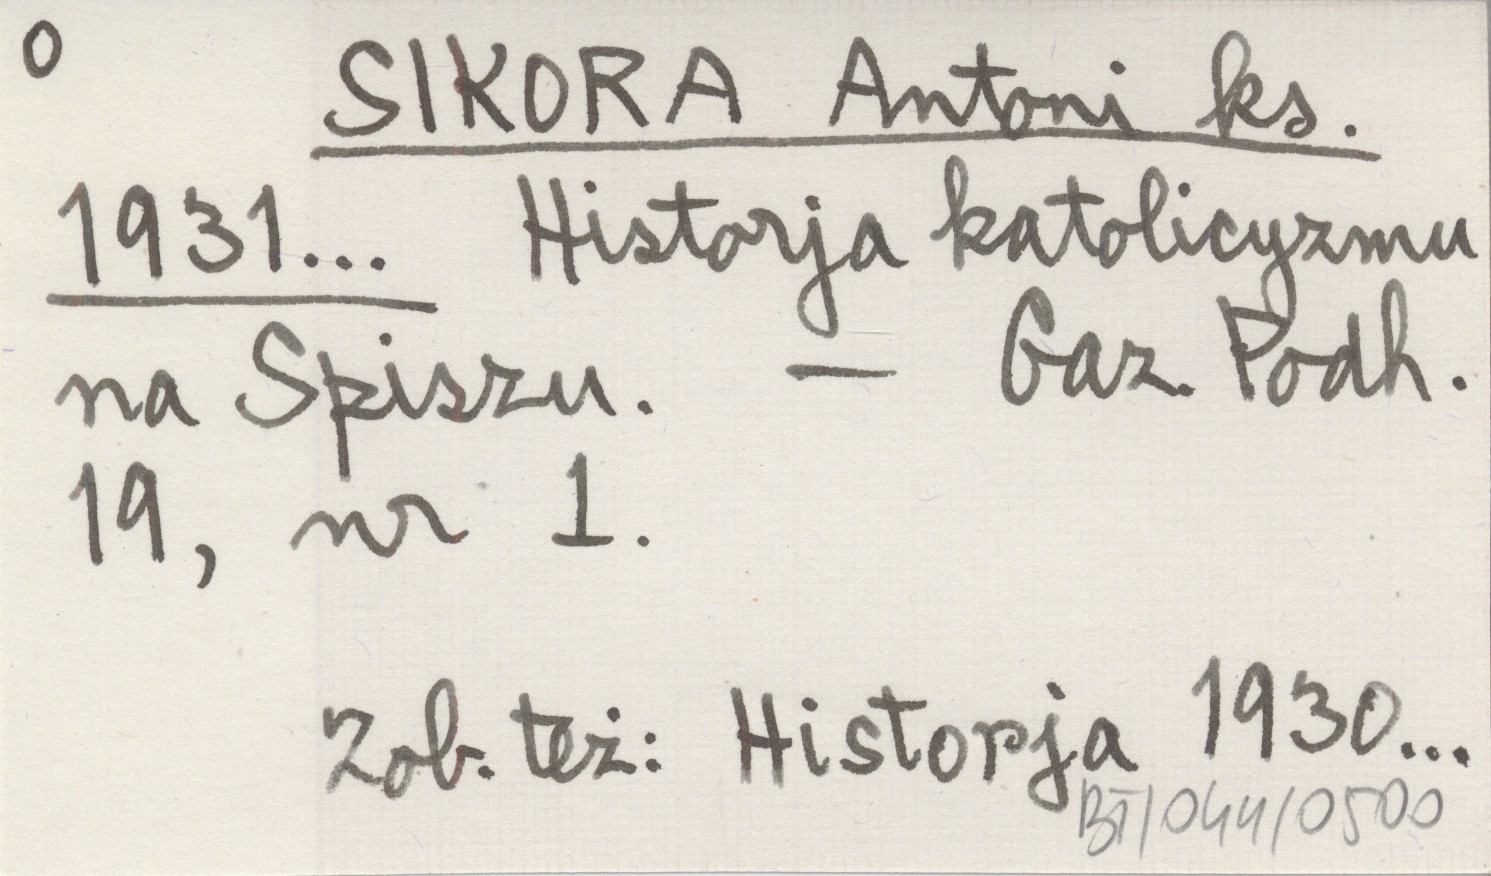 O
SIKORA Antoni ks.
1931... Historja katolicyzmu
na Spiszu. — Gaz. Podh.
19, nr 1.
Zob. też: Historja 1930...
BT/044/0500